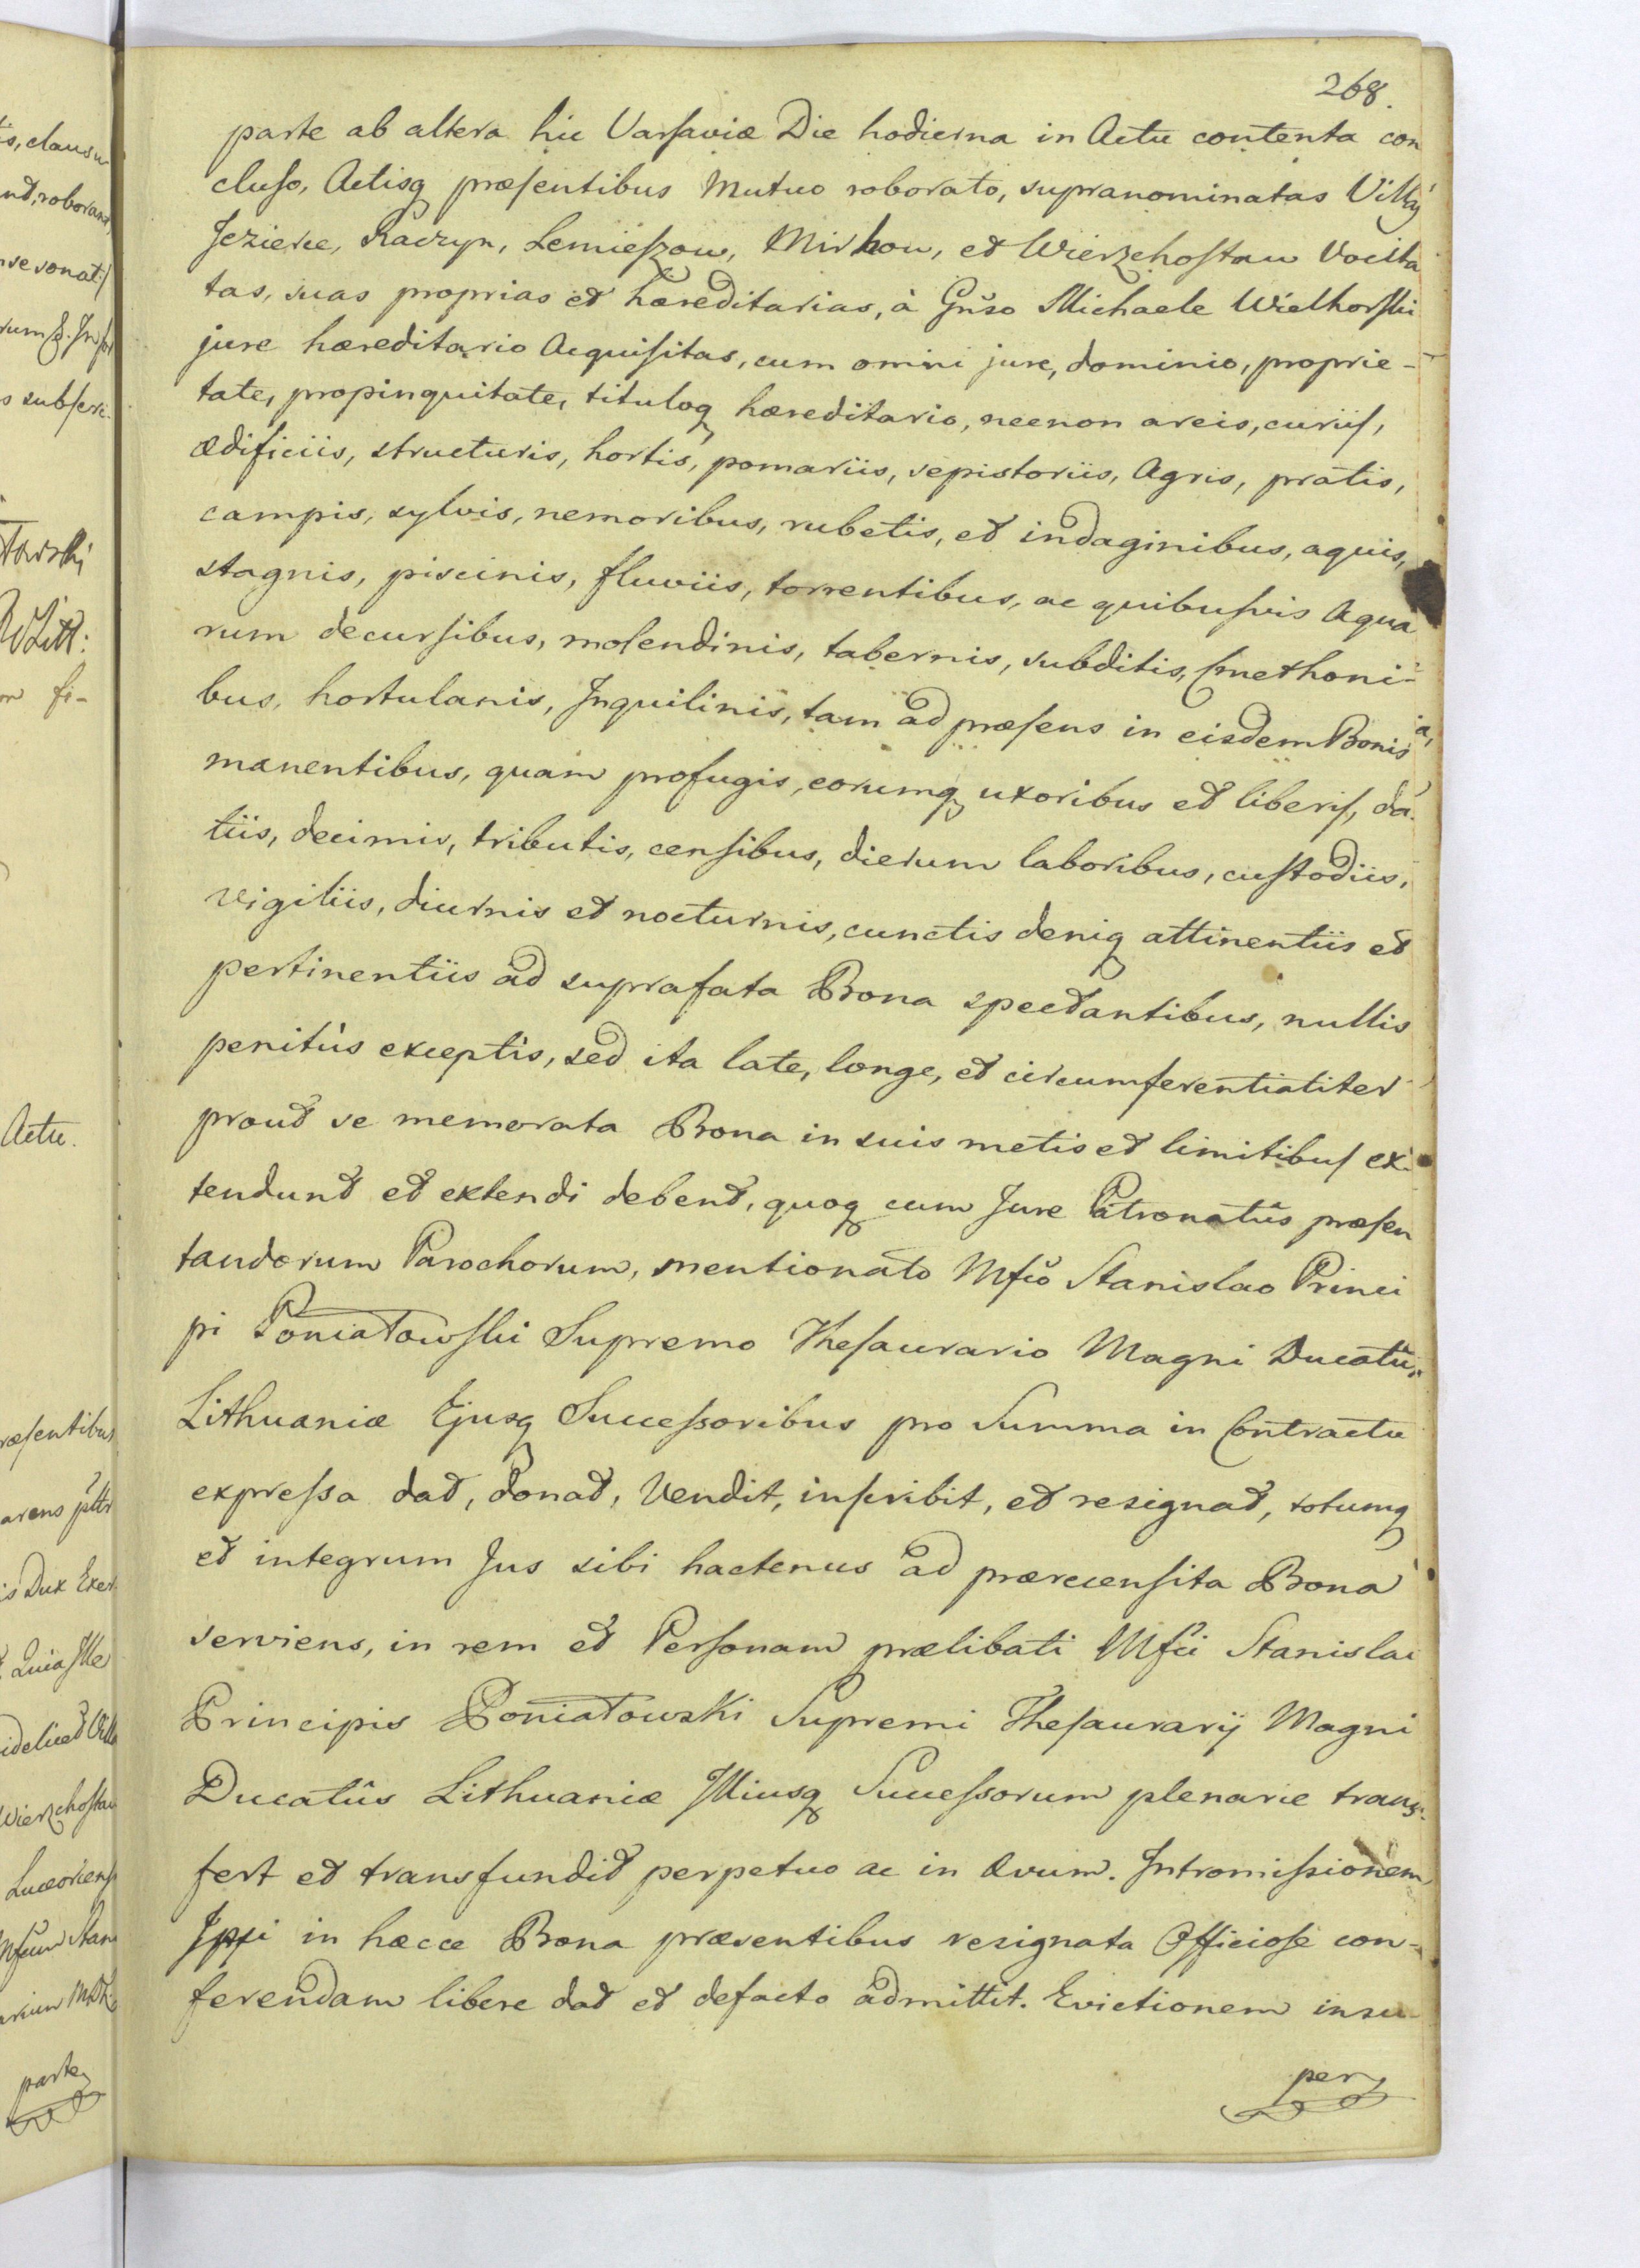 268.
parte ab altera hic Varsaviæ Die hodierna in Actu contenta con
cluso, Actisq præsentibus Mutuo roborato, supranominatas Villas
Jezierce, Raczyn, Lemieszow, Mirkow, et Wierzchostaw Vocita
tas, suas proprias et hæreditarias, à Gnso Michaele Wielhorski
jure hæreditario Acquisitas, cum omni jure, dominio, proprie-
tate, propinquitate, tituloq hæreditario, necnon areis, curiis,
ædificiis, structuris, hortis, pomariis, sepistoriis, Agris, pratis,
campis, sylvis, nemoribus, rubetis, et indaginibus, aquis,
stagnis, piscinis, fluviis, torrentibus, ac quibusvis Aqua
rum decursibus, molendinis, tabernis, subditis, Cmethoni-
bus, hortulanis, Inquilinis, tam ad præsens in eisdem Bonis
manentibus, quam profugis, eorumq uxoribus et liberis, da
tiis, decimis, tributis, censibus, dierum laboribus, custodiis,
vigiliis, diurnis et nocturnis, cunctis deniq attinentiis et
pertinentiis ad suprafata Bona spectantibus, nullis
penitùs exceptis, sed ita late, longe, et circumferentialiter
prout se memorata Bona in suis metis et limitibus ex
tendunt et extendi debent, quoq cum Jure Patronatûs præsen
tandorum Parochorum, mentionato Mfco Stanislao Princi
pi Poniatowski Supremo Thesaurario Magni Ducatûs
Lithuaniæ Ejusq Successoribus pro Summa in Contractu
expressa dat, donat, Vendit, inscribit, et resignat, totumq
et integrum Jus sibi hactenus ad præcensita Bona
serviens, in rem et Personam prælibati Mfci Stanislai
Principis Poniatowski Supremi Thesaurarij Magni
Ducatûs Lithuaniæ Illiusq Successorum plenarie trans-
fert et transfundit perpetuo ac in ævum. Intromissionem
Ipsi in hæcce Bona præsentibus resignata Officiose con-
ferendam libere dat et defacto admittit. Evictionem insu-
per